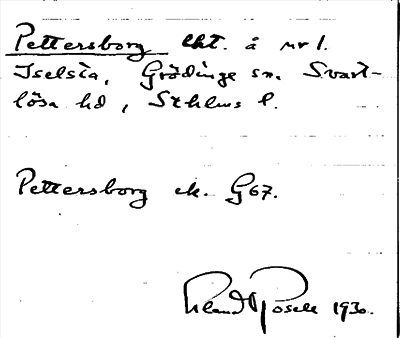 Pettersborg lht. å nr 1.
Iselsta, Grödinge sn. Svart-
lösa hd, Sthlms l.
Pettersborg ek. G 67.
Erland Rosell 1930.